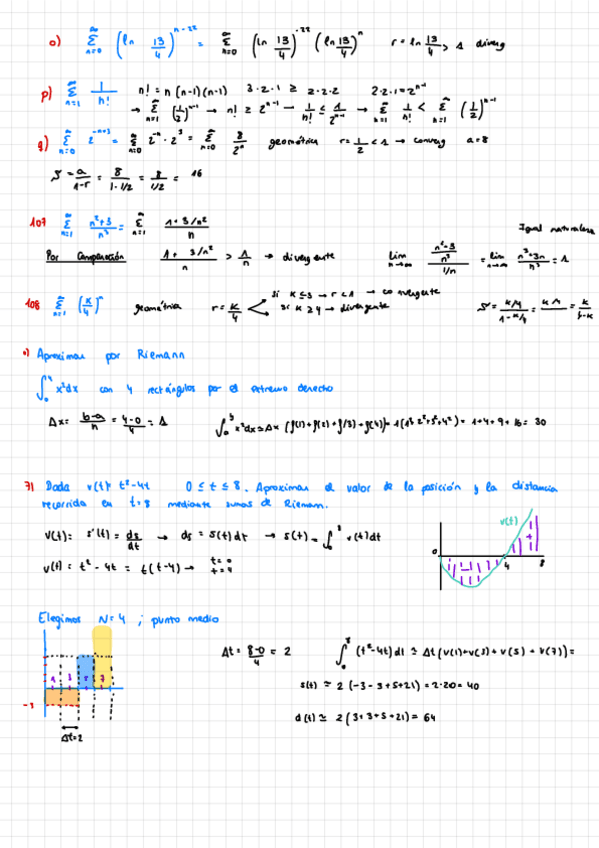 o) ∞Σn=0 (ln 13/4)^n-22 = ∞Σn=0 (ln 13/4)^-22 (ln 13/4)^n r = ln 13/4 > 1 diverg
p) ∞Σn=1 1/n! n! = n (n-1)(n-1) 3·2·1 ≥ 2·2·2 2·2·1 = 2^n-1
→ ∞Σn=1 (1/2)^n-1 → n! ≥ 2^n-1 → 1/n! ≤ 1/2^n-1 → ∞Σn=1 1/n! < ∞Σn=1 (1/2)^n-1
q) ∞Σn=0 2^-n+3 = ∞Σn=0 2^-n · 2^3 = ∞Σn=0 8/2^n geométrica r = 1/2 < 1 → converg a = 8
S = a/1-r = 8/1-1/2 = 8/1/2 = 16
107 ∞Σn=1 n²+3/n³ = ∞Σn=1 1+3/n²/n
Igual naturaleza
Por Comparación 1+3/n²/n > 1/n → divergente lim n→∞ n²+3/n³/1/n = lim n→∞ n³+3n/n³ = 1
108 ∞Σn=1 (k/4)^n geométrica r = k/4 si k ≤ 3 → r < 1 → convergente
si k ≥ 4 → divergente S = k/4/1-k/4 = k/4-k
•) Aproximar por Riemann
∫₀⁴ x²dx con 4 rectángulos por el extremo derecho
Δx = b-a/n = 4-0/4 = 1 ∫ x²dx ≃ Δx (f(1) + f(2) + f(3) + f(4)) = 1(1²+2²+3²+4²) = 1+4+9+16 = 30
71 Dada v(t) = t²-4t 0 ≤ t ≤ 8. Aproximar el valor de la posición y la distancia
recorrida en t=8 mediante sumas de Rieman.
v(t) = s'(t) = ds/dt → ds = s(t)dt → s(t) = ∫₀⁸ v(t)dt
v(t)
v(t) = t²-4t = t(t-4) → t=0
t=4
0 4 8
Elegimos N=4 ; punto medio
Δt = 8-0/4 = 2 ∫₀⁸ (t²-4t)dt ≃ Δt(v(1)+v(3)+v(5)+v(7)) =
1 3 5 7
s(t) ≃ 2(-3-3+5+21) = 2·20 = 40
-3
d(t) ≃ 2(3+3+5+21) = 64
Δt=2